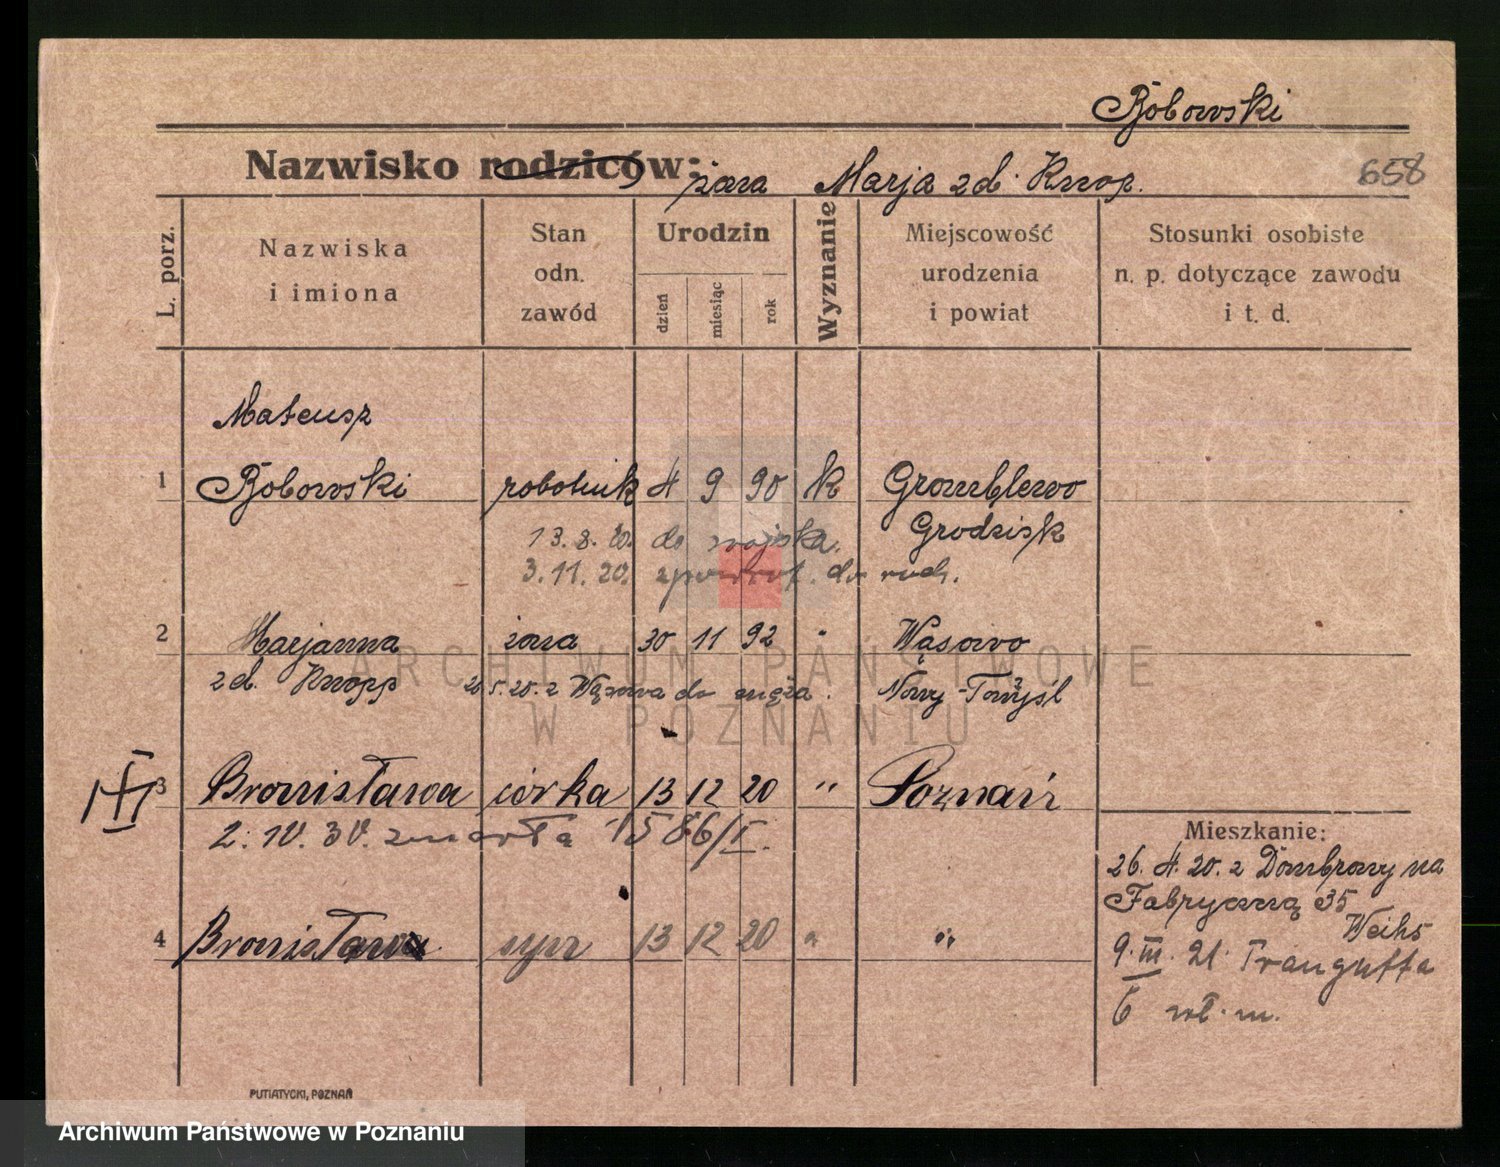 Bobowski
Nazwisko rodziców: żona Marja zd. Knop. 658
L. porz.
Nazwiska i imiona
Stan odn. zawód
Urodzin
dzień
miesiąc
rok
Wyznanie
Miejscowość urodzenia i powiat
Stosunki osobiste n. p. dotyczące zawodu i t. d.
Mateusz
1 Bobowski robotnik 4 9 90 k Gromblewo
Grodzisk
13.8.20. do wojska.
3.11.20. zpowrot. do rodz.
2 Marjanna żona 30 11 92 " Wąsowo
zd. Knopp 20.5.20. z Wąsowa do męża. Nowy-Tomyśl
III
3 Bronisława córka 13 12 20 " Poznań
2. IV. 30. zmarła 1586/I.
4 Bronisław syn 13 12 20 " "
Mieszkanie:
26. 4. 20. z Dombrowy na
Fabryczną 35
Weihs
9. III. 21. Traugutta
6 wł. m.
PUTIATYCKI, POZNAŃ
ARCHIWUM PAŃSTWOWE
W POZNANIU
Archiwum Państwowe w Poznaniu